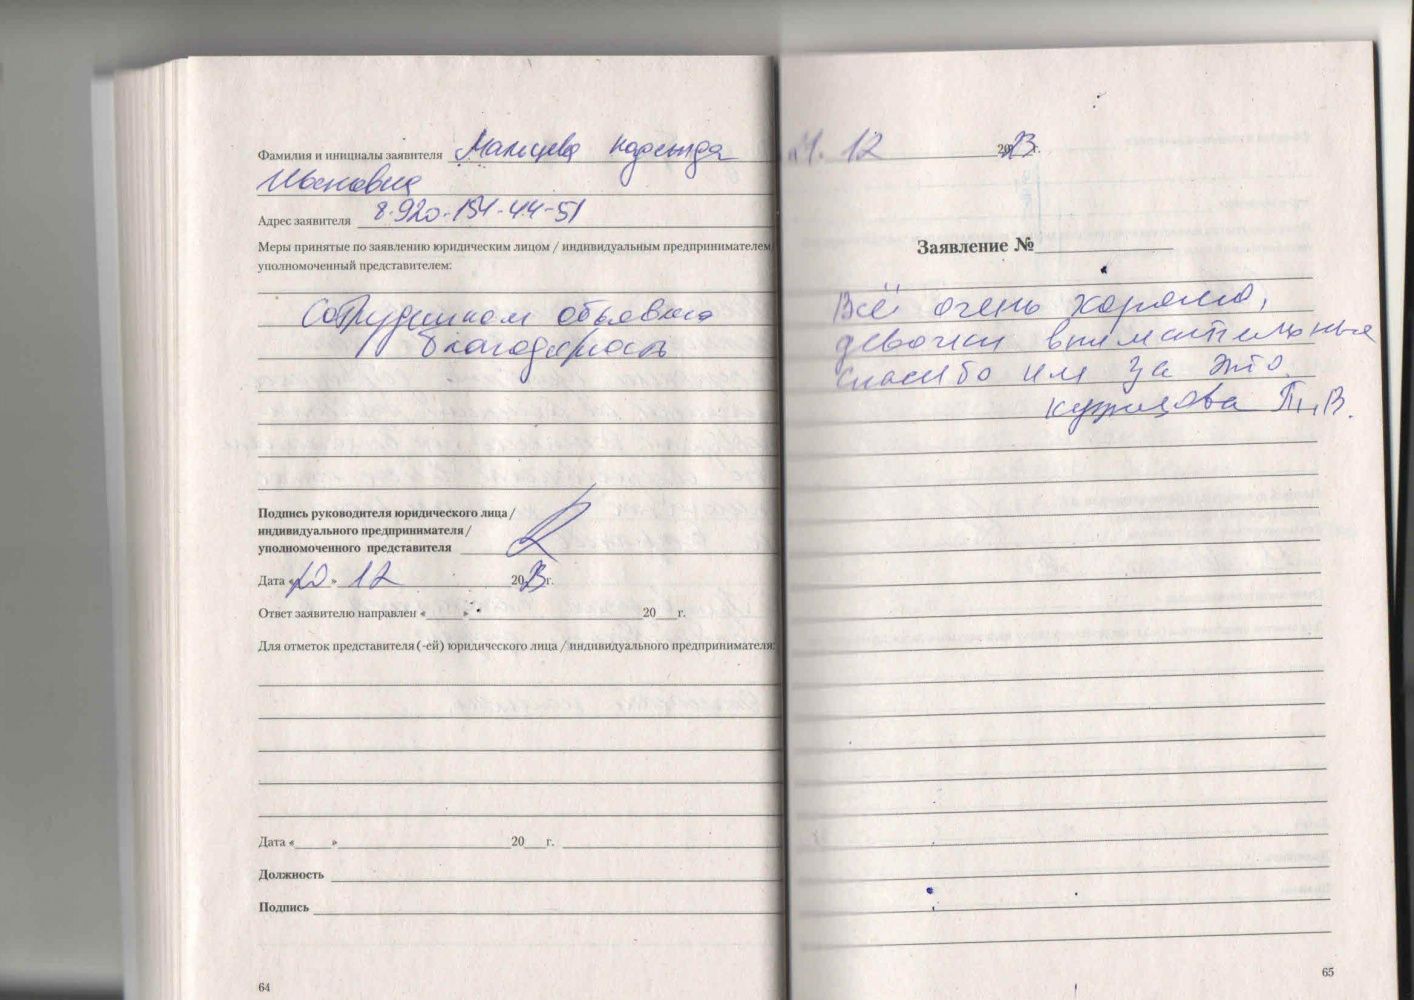 Фамилия и инициалы заявителя Мальцева Надежда
Ивановна
Адрес заявителя 8-920-154-44-51
Меры принятые по заявлению юридическим лицом / индивидуальным предпринимателем
уполномоченный представителем:
Сотрудникам объявлена
благодарность
Подпись руководителя юридического лица /
индивидуального предпринимателя /
уполномоченного представителя
Дата « 20 » 12 2023 г.
Ответ заявителю направлен «      » 20    г.
Для отметок представителя (-ей) юридического лица / индивидуального предпринимателя:
Дата «      » 20    г.
Должность
Подпись
64
12 2023 г.
Заявление №
Всё очень хорошо,
девочки внимательные
спасибо им за это.
В.
65